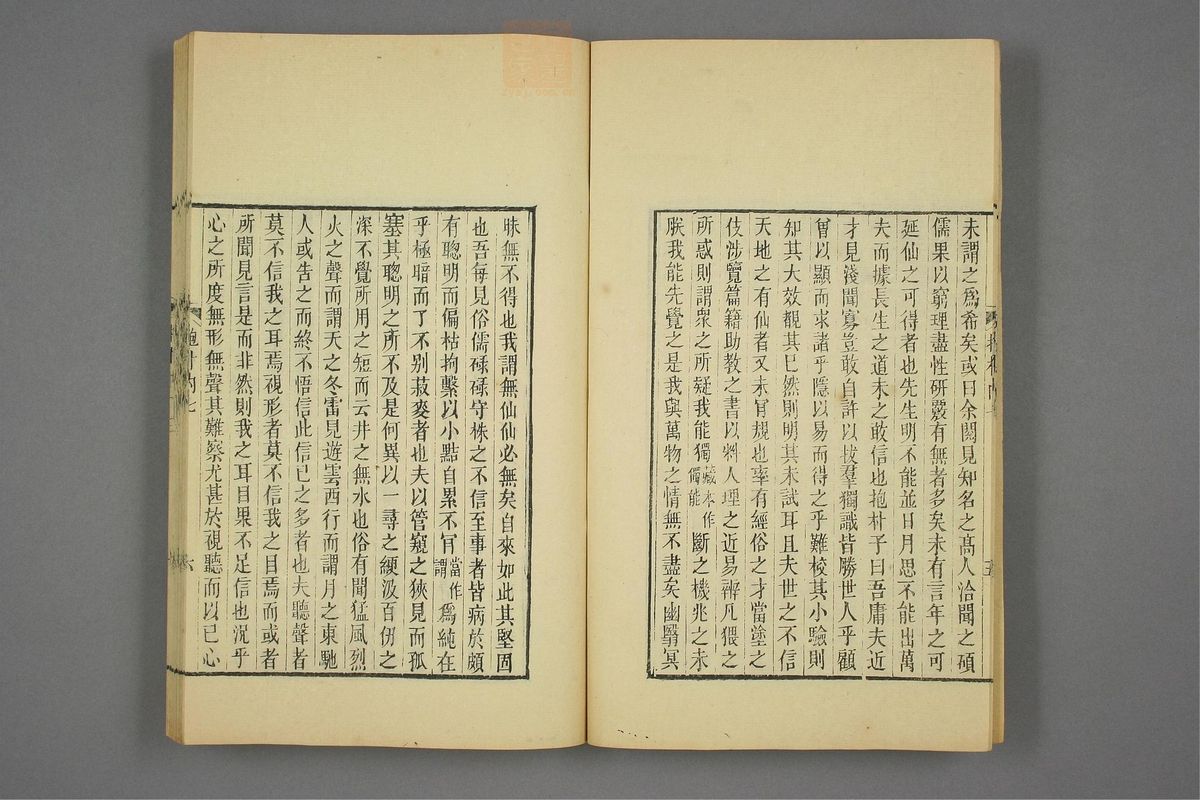 未謂之爲希矣或曰余閱見知名之高人洽聞之碩
儒果以窮理盡性研覈有無者多矣未有言年之可
延仙之可得者也先生明不能並日月思不能出萬
夫而據長生之道未之敢信也抱朴子曰吾庸夫近
才見淺聞寡豈敢自許以拔羣獨識皆勝世人乎顧
曾以顯而求諸乎隱以易而得之乎難校其小驗則
知其大效覩其已然則明其未試耳且夫世之不信
天地之有仙者又未肯規也率有經俗之才當塗之
伎涉覽篇籍助敎之書以料人理之近易辨凡猥之
所惑則謂衆之所疑我能獨藏本作獨能斷之機兆之未
朕我能先覺之是我與萬物之情無不盡矣幽翳冥
五
昧無不得也我謂無仙仙必無矣自來如此其堅固
也吾每見俗儒碌碌守株之不信至事者皆病於頗
有聰明而偏枯拘繫以小黠自累不肯當作謂爲純在
乎極暗而了不别菽麥者也夫以管窺之狹見而孤
塞其聰明之所不及是何異以一尋之綆汲百仞之
深不覺所用之短而云井之無水也俗有聞猛風烈
火之聲而謂天之冬雷見遊雲西行而謂月之東馳
人或吿之而終不悟信此信已之多者也夫聽聲者
莫不信我之耳焉視形者莫不信我之目焉而或者
所聞見言是而非然則我之耳目果不足信也況乎
心之所度無形無聲其難察尤甚於視聽而以已心
抱朴内七
六